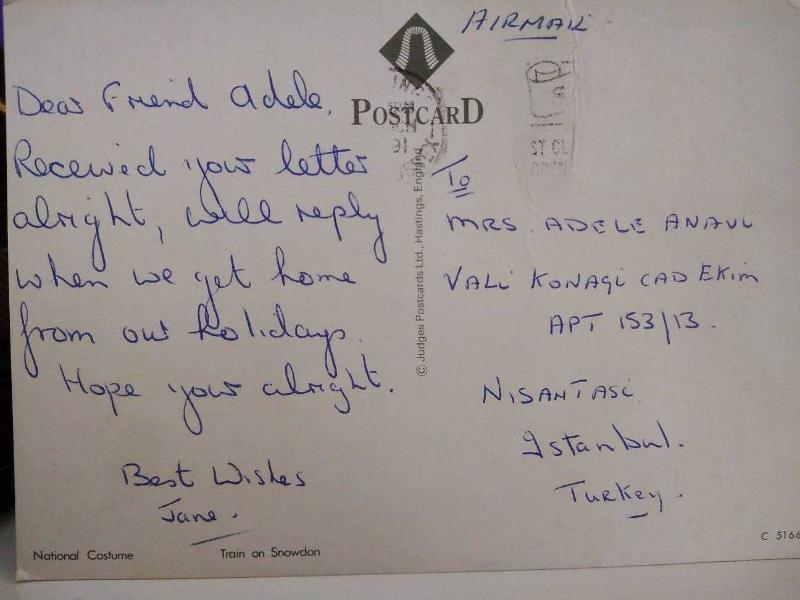 AIRMAIL
POSTCARD
Dear Friend Adele.
Received your letter
alright, will reply
when we get home
from our holidays.
Hope your alright.
Best Wishes
Jane.
© Judges Postcards Ltd., Hastings, England
To
MRS. ADELE ANAVI
VALI KONAGI CAD EKIM
APT 153/13.
NISANTASI
Istanbul.
Turkey.
91
ST CL
National Costume
Train on Snowdon
C 5166